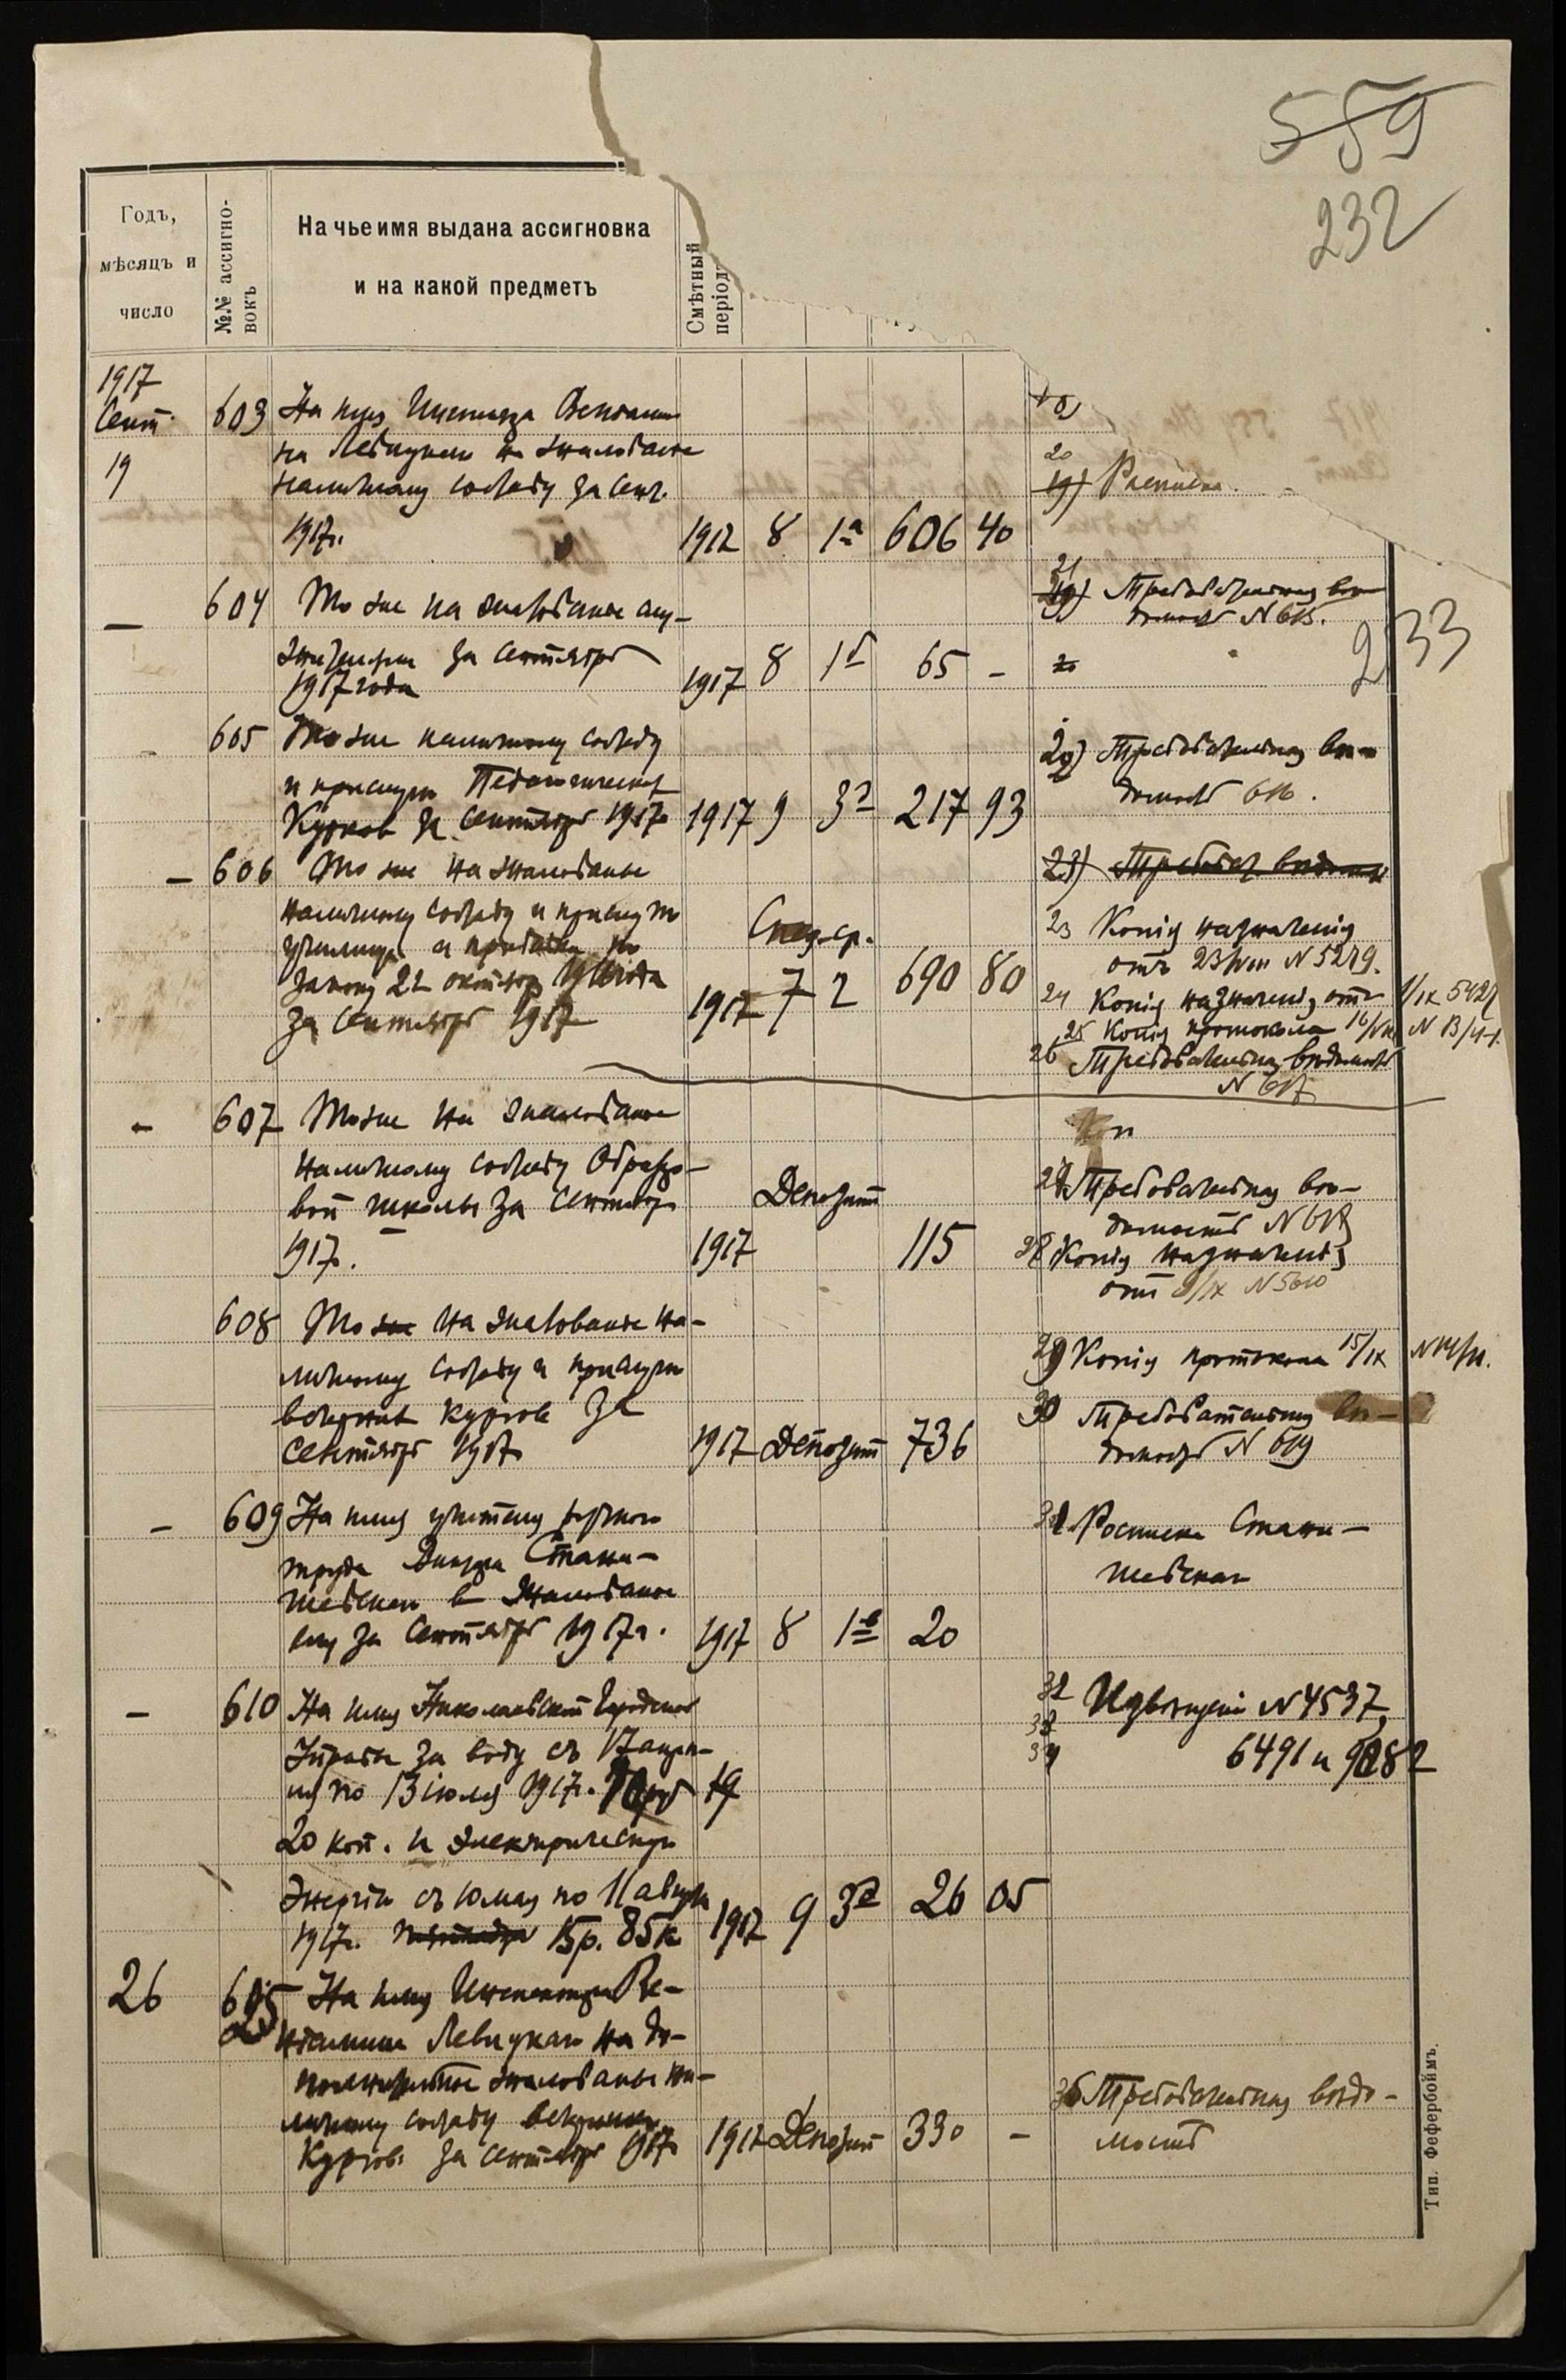 559
232
Годъ,
мѣсяцъ и
число
№№ ассигно-
вокъ
На чье имя выдана ассигновка
и на какой предметъ
Смѣтный
періодъ
1917
Сент.
19
603 На имя Инспектора Веніами
на Левицкаго на жалованье
личному составу за сент.
1917г. 1917 8 1а 606 40
20
19) Расписка.
604 То же на жалованье слу-
жителям за Сентябрь
1917 года 1917 8 1б 65 -
21
Требовательная ведо-
мость N 615.
233
605 То же личному составу
и прислуги Педагогических
Курсов за Сентябрь 1917г 1917 9 3 217 93
Требовательная ведо-
мость 616.
- 606 То же на жалованье
личному составу и прислуги
училища и прибавки по
закону 22 октября года
за Сентябрь 1917 Спец. ср. 1917 7 2 690 80
23) Требоват. ведомость
23 Копия назначения
отъ 23/VIII N 5279.
24 Копия назначения отъ 1/IX 5427
25 Копия протокола 16/VIII N 13/
26 Требовательная ведомость
N 617
- 607 То же на жалованье
личному составу Образцо-
вой школы за Сентябрь
1917г. 1917 Депозит 115
Коп
27 Требовательная ведо-
мость N 618
28 Копия назначения
отъ /IX N 5610
608 То же на жалованье на-
личному составу и прислуги
вечерних курсов за
Сентябрь 1917г 1917 Депозит 736
29 Копия протокола 15/IX N
30 Требовательная ве-
домость N 619
- 609 На имя учителя ручного
труда Стани-
шевскаго жалованье
ему за Сентябрь 1917г. 1917 8 1в 20
31 Росписка Стани-
шевскаго
- 610 На имя Николаевской Городской
Управы за воду съ 17 апре-
ля по 13 июля 1917г. 10 руб
20 коп. и электрическую
Энергию съ 10 мая по 11 августа
1917г. 15р. 85к 1917 9 3 26 05
32 Извещения N 4537,
33
34 6491 и 9282
26 На имя Инспектора Ве-
ниамина Левицкаго на до-
полнительное жалованье на-
личному составу вечерних
Курсов за Сентябрь 1917г 1917 Депозит 330 -
35 Требовательная ведо-
мость
Тип. Фефербоймъ.